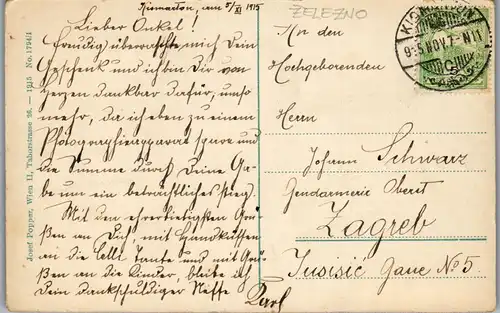 Kismarton, am 5/XI 1915
Lieber Onkel!
Freudig überraschte mich Dein
Geschenk und ich bin Dir von
Herzen dankbar dafür, umso
mehr, da ich eben zu einem
Photographierapparat spare und
die Summe durch Deine Ga-
be um ein beträchtliches stieg.
Mit den ehrerbietigsten Grü-
ßen an Dich, mit Handküssen
an die Tante und mit Grü-
ßen an die Kinder, bleibe ich
Dein dankschuldiger Neffe
Karl
ŽELEZNO
An den
Hochgeborenden
Herrn
Johann Schwarz
Gendarmerie Oberst
Zagreb
Gasse No 5.
Josef Popper, Wien II, Taborstrasse 26. — 1915 No. 1794/1